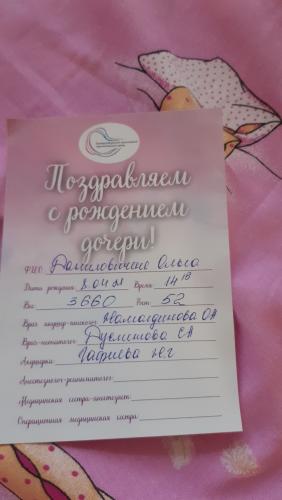 Поздравляем
с рождением
дочери!
ФИО Ольга
Дата рождения Время 14 18
Вес 3660 Рост 52
Врач акушер-гинеколог Жамалдинова ОА
Врач-неонатолог ЕА
Акушерка Гафиева
Анестезиолог-реаниматолог
Медицинская сестра-анестезист
Операционная медицинская сестра